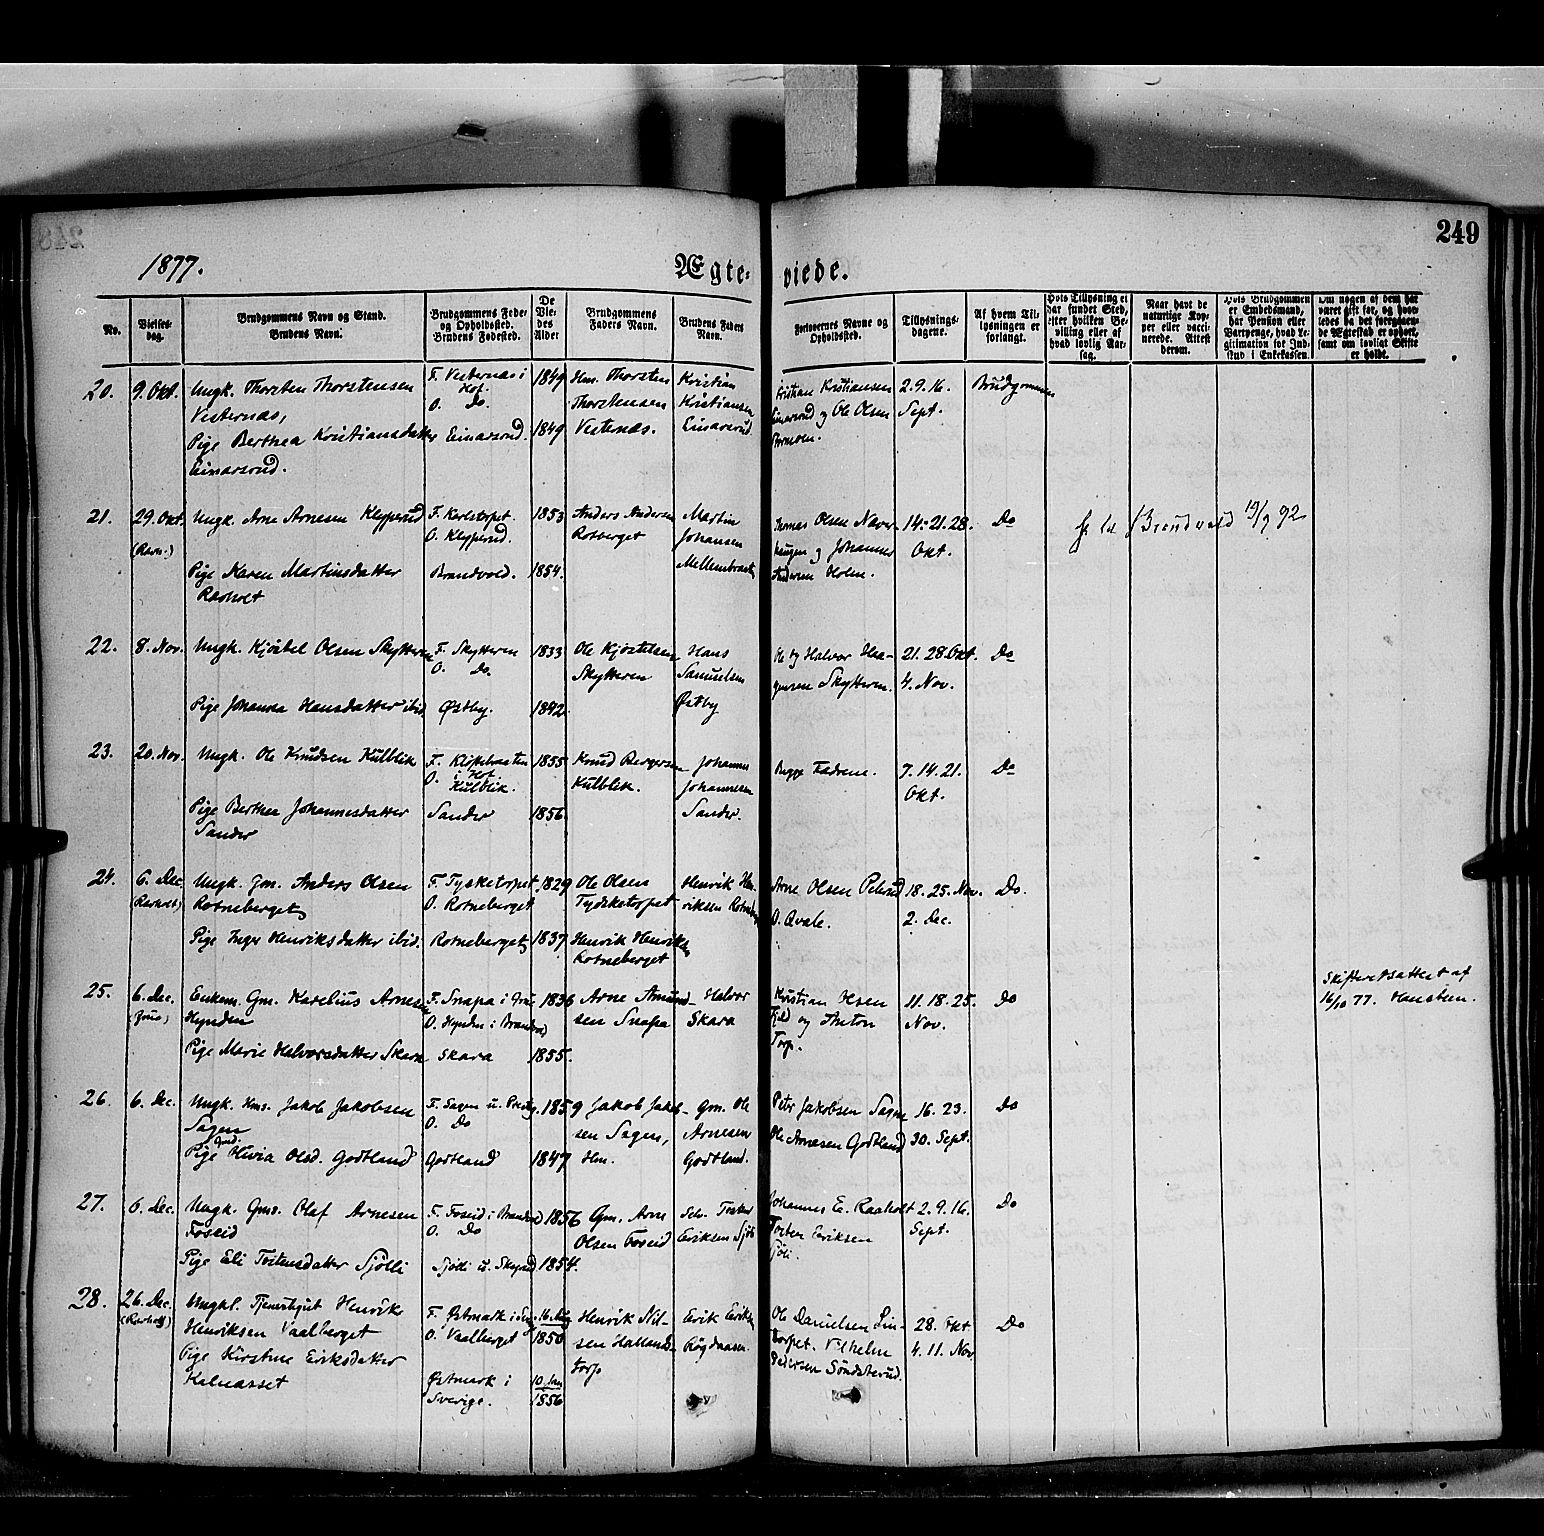 249
1877.
Ægte-
viede.
No.
Vielses-
dag.
Brudgommens Navn og Stand.
Brudens Navn.
Brudgommens Føde-
og Opholdssted.
Brudens Fødested.
De
Vie-
des
Alder
Brudgommens
Faders Navn.
Brudens Faders
Navn.
Forlovernes Navne og
Opholdssted.
Tillysnings-
dagene.
Af hvem Til-
lysningen er
forlangt.
Hvis Tillysning ei
har fundet Sted,
efter hvilken Be-
villing eller af
hvad lovlig Aar-
sag.
Naar havt de
naturlige Kop-
per eller vacci-
nerede. Attest
derom.
Hvis Brudgommen
er Embedsmand,
har Pension eller
Vartpenge, hvad Le-
gitimation for Ind-
skud i Enkekassen.
Om nogen af dem har
været gift før, og hvor-
ledes da det foregaaen-
de Ægteskab er ophørt,
samt om lovligt Skifte
er holdt.
20.
9. Okt.
Ungk. Thorsten Thorstensen
Vesternæs,
Pige Berthea Kristiansdatter
Einarsrud.
F. Vesternæs i
Hof.
O. Do.
Einarsrud.
1849
1849
Hm. Thorsten
Thorstensen
Vesternæs.
Kristian
Kristiansen
Einarsrud
Kristian Kristiansen
Einarsrud og Ole Olsen
2. 9. 16.
Sept.
Brudgommen
21.
29. Okt.
Ungk. Arne Arnesen Klypperud
Pige Karen Martinsdatter
Raaholt
F. Karlstorpet.
O. Klypperud.
Brandvold.
1853
1854.
Anders Andersen
Rotberget
Martin
Johansen
Thomas Olsen Naver-
haugen og Johannes
Andersen Holen.
14. 21. 28.
Okt.
Do
Brandvold 19/9 92
22.
8. Nov.
Ungk. Kjöstel Olsen Skytteren
Pige Johanna Hansdatter ibid.
F. Skytteren
O. Do.
Østby.
1833
1842.
Ole Kjöstelsen
Skytteren
Hans
Samuelsen
Østby
Ole og Halvor Haa-
gensen Skytteren.
21. 28. Okt.
4. Nov.
Do
23.
20. Nov.
Ungk. Ole Knudsen Kulblik
Pige Berthea Johannesdatter
Sander
F.
i Hof
O. Kulblik.
Sander
1855
1856.
Knud Bergersen
Kulblik.
Johannes
Johannesen
Sander.
Begge Fædrene.
7. 14. 21.
Okt.
Do
24.
6. Dec
(Raaholt)
Ungk. Gm. Anders Olsen
Rotneberget
Pige Inger Henriksdatter ibid.
F. Tysketorpet
O. Rotneberget
Rotneberget
1829
1837
Ole Olsen
Tydsketorpet
Henrik Henriksen
Rotneberget
Henrik Hen-
riksen Rotneberget
Arne Olsen Pelerud
O. Qvale.
18. 25. Nov.
2. Dec.
Do.
25.
6. Dec.
(Grue)
Enkem. Gm. Karelius Arnesen
Hynden
Pige Marie Halvorsdatter Skara
F. Snapa i Grue
O. Hynden i Brandvold
Skara
1836
1855.
Arne Amund-
sen Snapa
Halvor
Skara
Kristian Olsen
Fjeld og Anton
Torp.
11. 18. 25.
Nov.
Do
Skifteretsattest af
16/10 77. Hansteen.
26.
6. Dec.
Ungk. Hms. Jakob Jakobsen
Sagen
Gmd.
Pige Olivia Olsd. Godtland
F. Sagen u. Prestg.
O. Do
Godtland
1859
1847
Jakob Jakob-
sen Sagen,
Hm.
Gm. Ole
Arnesen
Godtland.
Peter Jakobsen Sagen
Ole Arnesen Godtland
16. 23.
30. Sept.
Do
27.
6. Dec.
Ungk. Gms. Olaf Arnesen
Fosseid
Pige Eli Tostensdatter Sjölli
F. Fosseid i Brandvold
O. Do
Sjölli u. Skyrud
1856
1854.
Gm. Arne
Olsen Fosseid
Selv. Tosten
Eriksen Sjölli
Johannes E. Raaholt
Tosten Eriksen
Sjöli.
2. 9. 16.
Sept.
Do
28.
26. Dec.
(Raaholt)
Ungkl. Tjenestegut Henrik
Henriksen Vaalberget
Pige Kirstine Eriksdatter
Kalnæsset
F. Østmark i Sverige
O. Vaalberget
Østmark i
Sverige.
16. Aug
1850
10. Jan
1856
Henrik Nil-
sen Halland-
torp
Erik Eriksen
Rögdnæsen.
Ole Danielsen Lin-
torpet. Vilhelm
Pedersen Söndsterud.
28. Okt
4. 11. Nov
Do